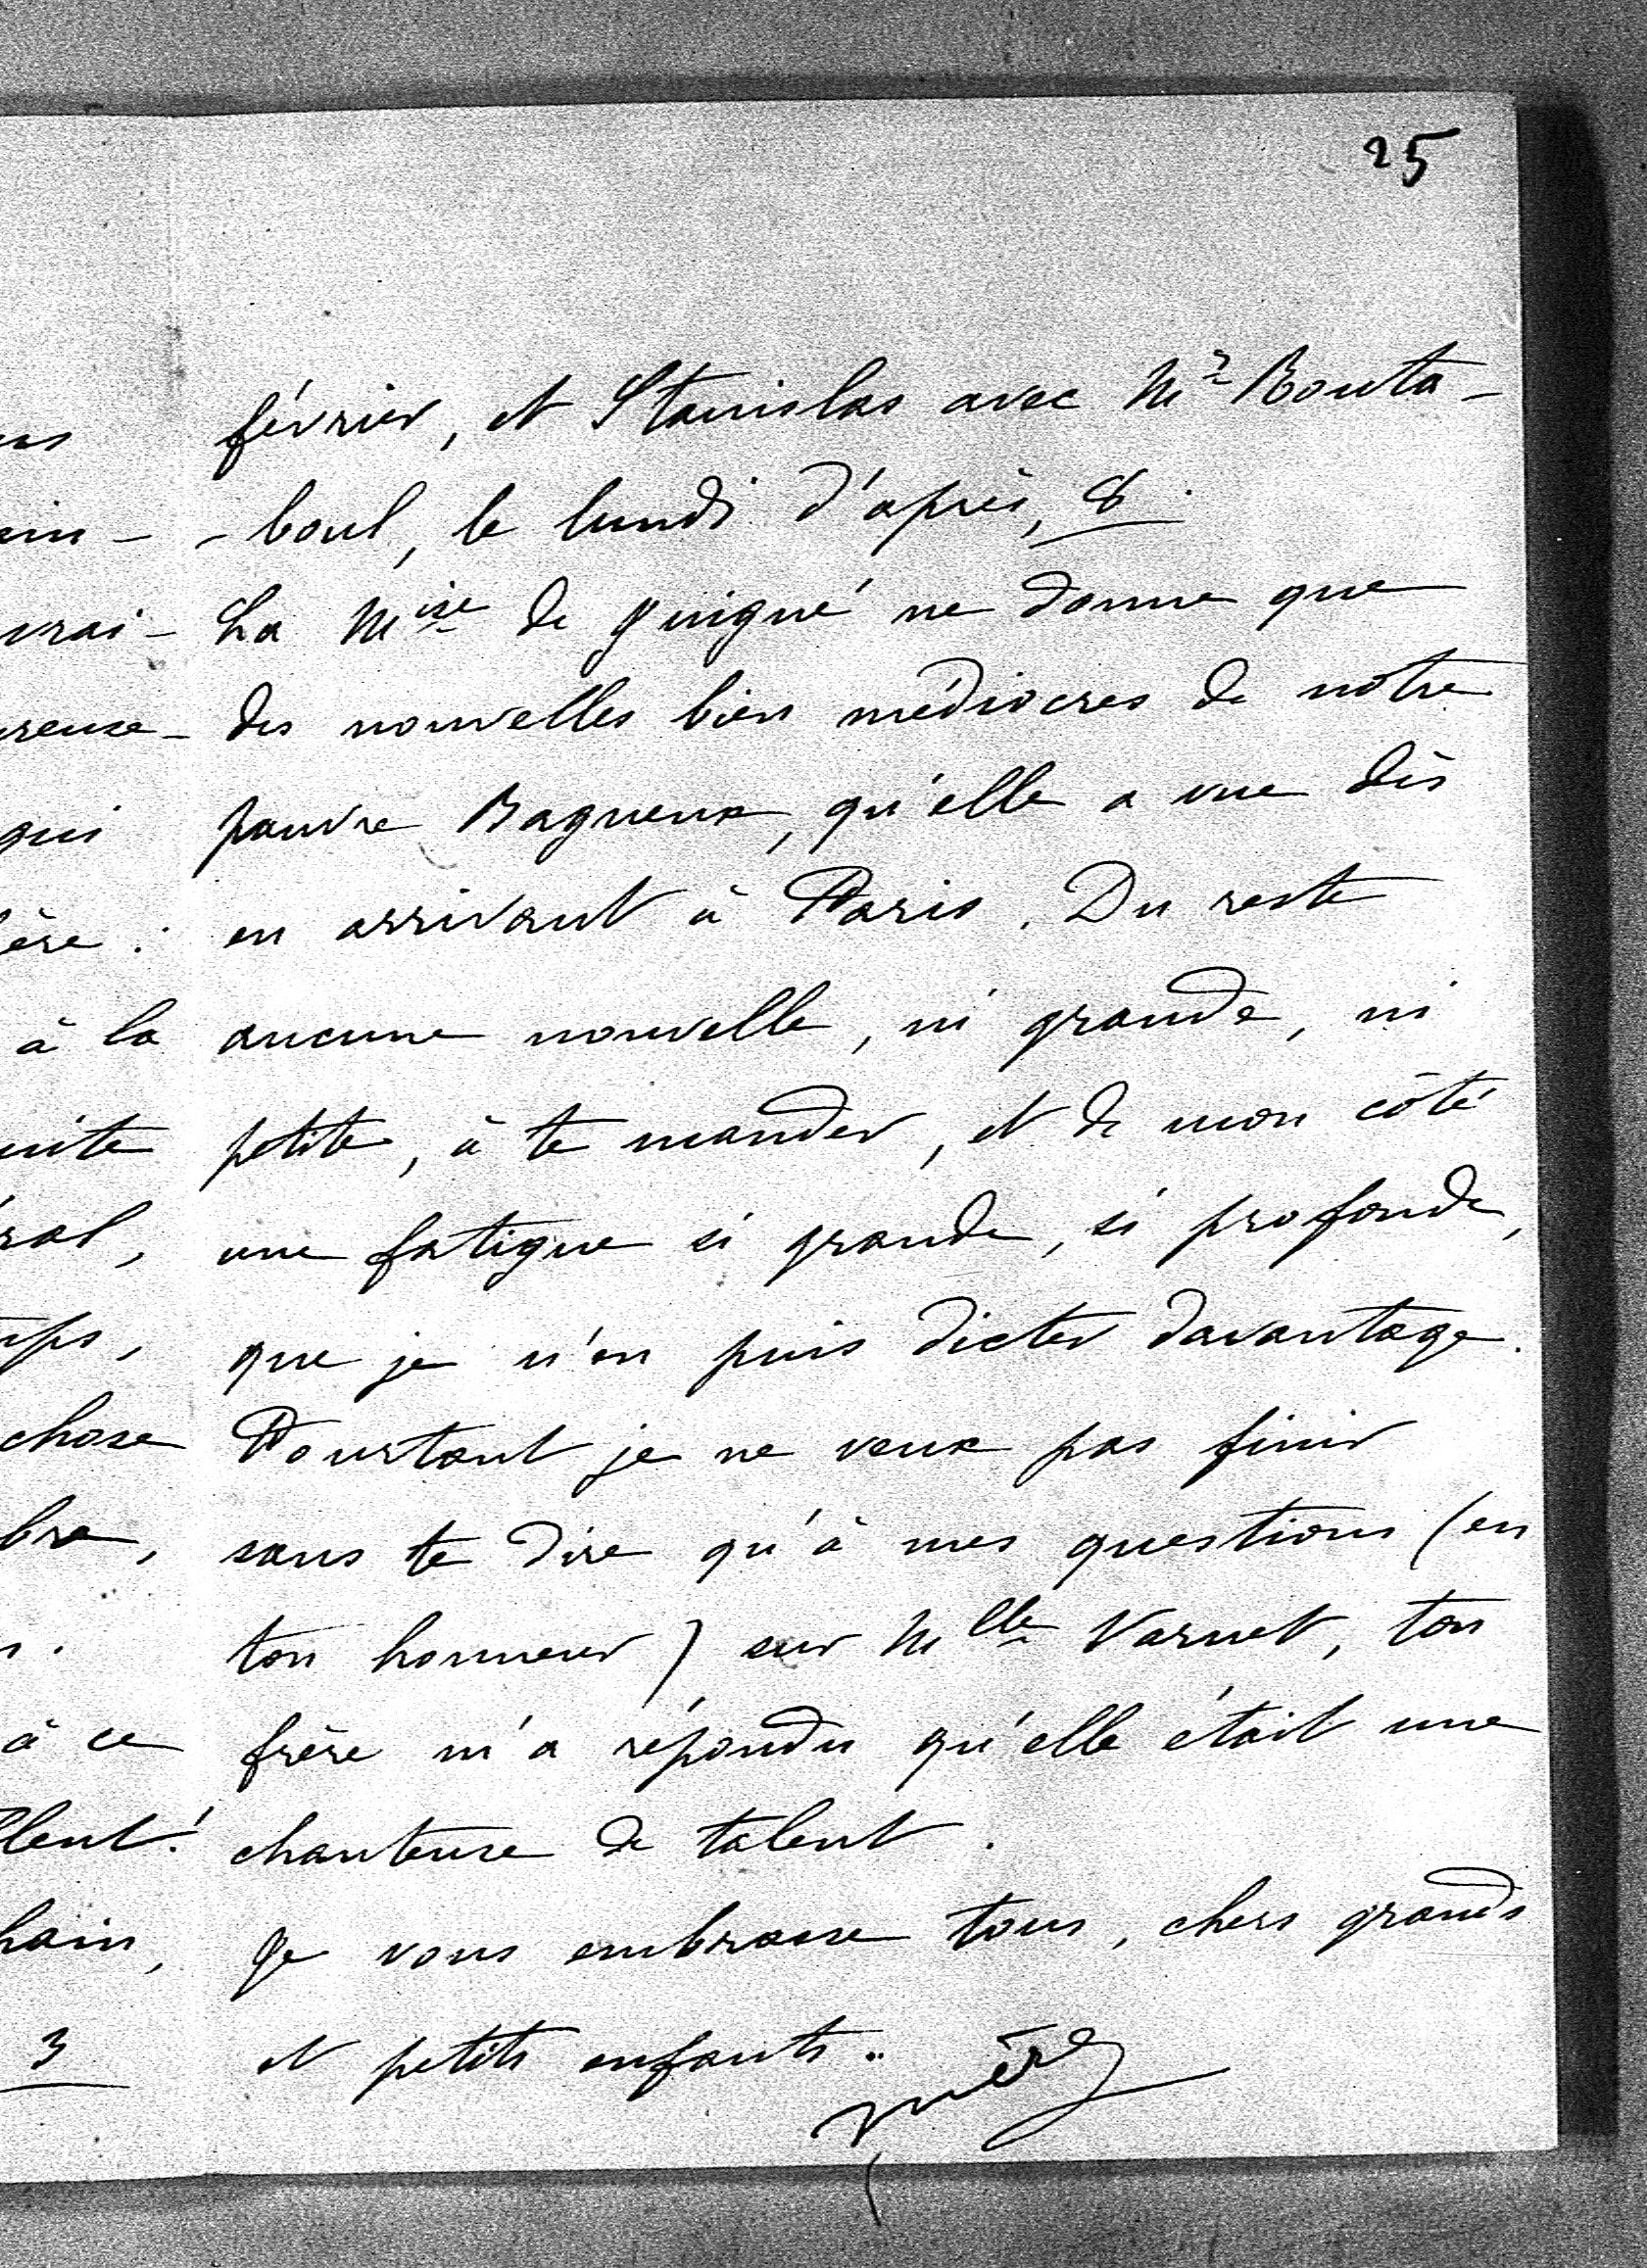 25
février, et Stanislas avec Mr Bouta-
-boul, le lundi d'après, 8.
La Mise de Guigné ne donne que
des nouvelles bien médiocres de notre
pauvre Bagneux, qu'elle a vue dès
en arrivant à Paris. Du reste
aucune nouvelle, ni grande, ni
petite, à te mander, et de mon côté
une fatigue si grande, si profonde,
que je n'en puis dicter davantage.
Pourtant je ne veux pas finir
sans te dire qu'à mes questions (en
ton honneur) sur Mlle Varnet, ton
frère m'a répondu qu'elle était une
chanteuse de talent.
Je vous embrasse tous, chers grands
et petits enfants..
mère
vrai-
qui
à la
chose
à ce
3